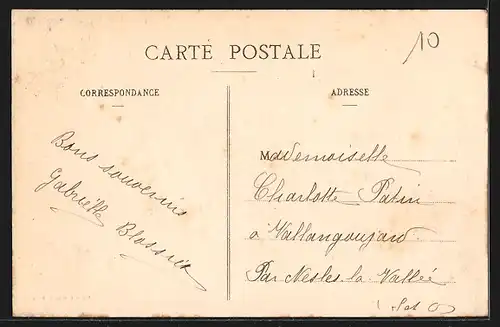 CARTE POSTALE
10
CORRESPONDANCE
ADRESSE
Bons souvenirs
Gabrielle
Mademoiselle
Charlotte Patin
à Vallangoujard
Par Nesles la Vallée
(S et O)